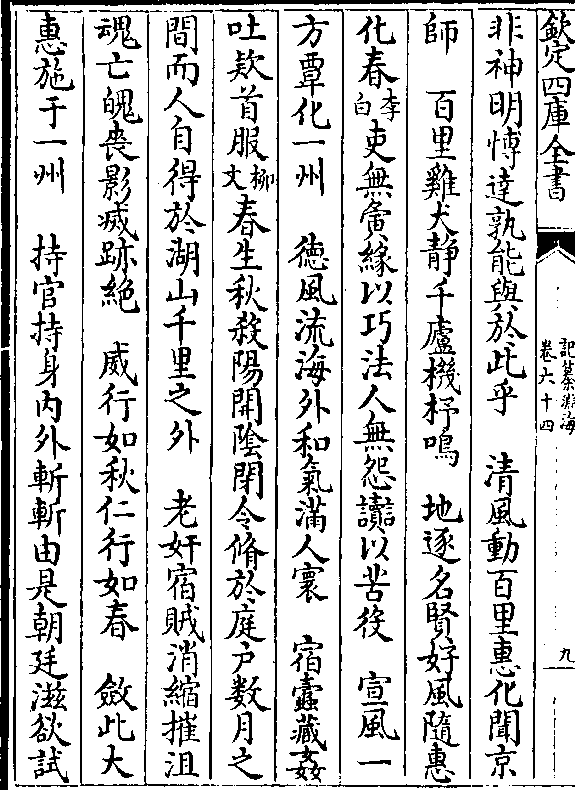 欽定四庫全書
記纂淵海
卷六十四
九
非神明愽達孰能與於此乎　清風動百里惠化聞京
師　百里雞犬静千廬機杼鳴　地逐名賢好風隨惠
化春李白吏無夤緣以巧法人無怨讟以苦役　宣風一
方覃化一州　徳風流海外和氣滿人寰　宿蠧藏姦
吐欵首服柳文春生秋殺陽開陰閉令脩於庭户数月之
間而人自得於湖山千里之外　老奸宿賊消縮摧沮
魂亡魄喪影滅跡絶　威行如秋仁行如春　斂此大
惠施于一州　持官持身内外斬斬由是朝廷滋欲試